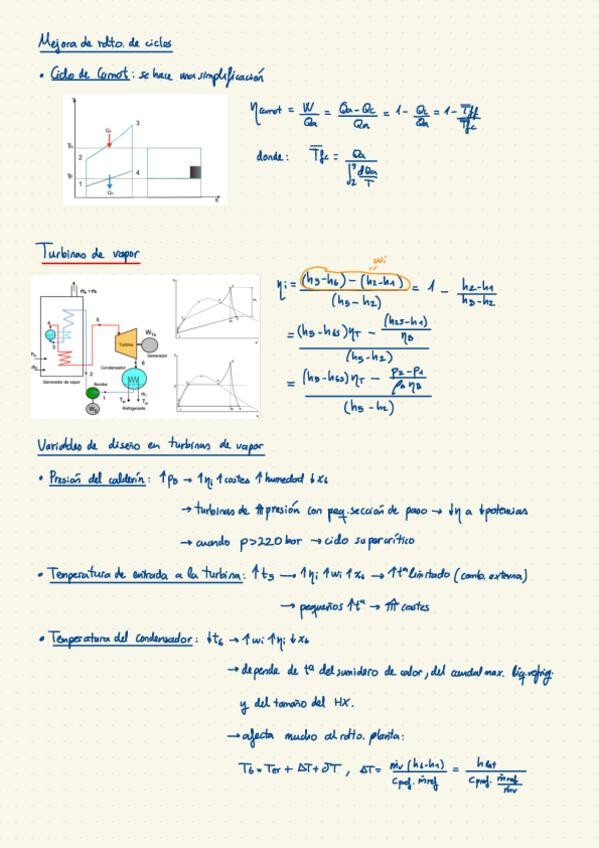 Mejora de rdto. de ciclos
• Ciclo de Carnot: se hace una simplificación
η carnot = W/Qa = (Qa-Qc)/Qa = 1- Qc/Qa = 1- T̄ff/T̄fc
donde: T̄fc = Qa / ∫₂³ dQa/T
2 3
1 4
Turbinas de vapor
wi
ηi = ((h5-h6) - (h2-h1)) / (h5-h2) = 1 - (h2-h1)/(h5-h2)
= ((h5-h6s)ηT - (h2s-h1)/ηB) / (h5-h2)
= ((h5-h6s)ηT - (p2-p1)/(ρ ηB)) / (h5-h2)
Turbina
Generador
Condensador
Generador de vapor
Bomba
Refrigerante
Variables de diseño en turbinas de vapor
• Presión del calderín: ↑pB → ↑ηi ↑costes ↑humedad ↓x6
→ turbinas de ⇈presión con peq. sección de paso → ↓η a ↓potencias
→ cuando p>220 bar → ciclo supercrítico
• Temperatura de entrada a la turbina: ↑t5 → ↑ηi ↑wi ↑x6 → ↑tª limitado (comb. externa)
→ pequeños ↑tª → ⇈ costes
• Temperatura del condensador: ↓t6 → ↑wi ↑ηi ↓x6
→ depende de tª del sumidero de calor, del caudal max. liq. refrig.
y del tamaño del HX.
→ afecta mucho al rdto. planta:
T6 = Ter + ΔT + δT, ΔT = ṁv (h6-h1) / (Cpref. ṁref) = hlat / (Cpref. ṁref/ṁv)